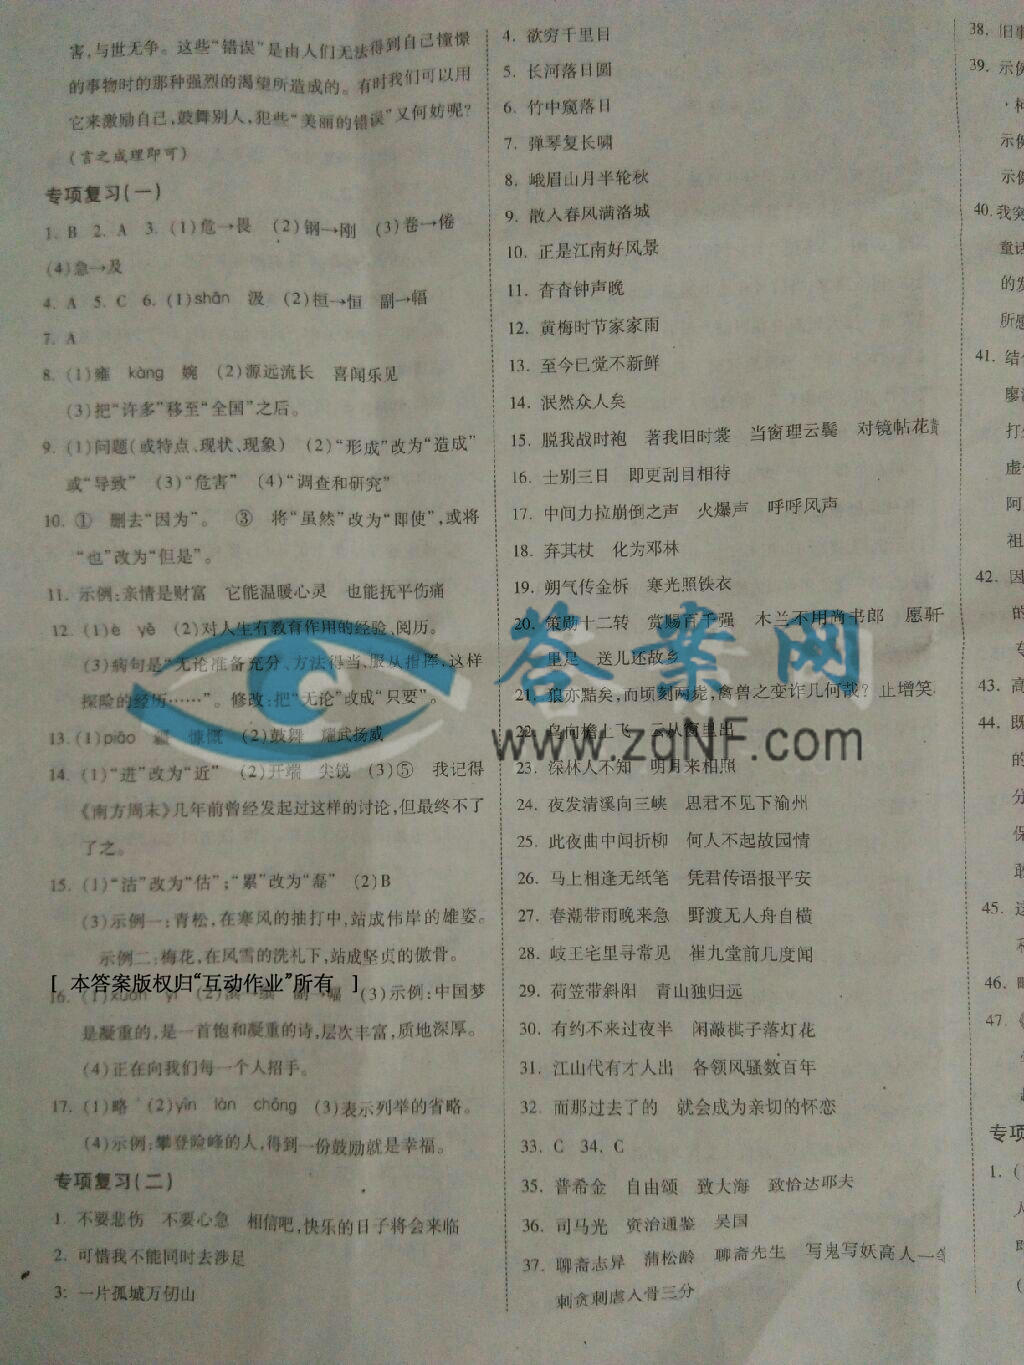 害,与世无争。这些“错误”是由人们无法得到自己憧憬
的事物时的那种强烈的渴望所造成的。有时我们可以用
它来激励自己,鼓舞别人,犯些“美丽的错误”又何妨呢?
(言之成理即可)
专项复习(一)
1. B 2. A 3. (1)危→畏 (2)钢→刚 (3)卷→倦
(4)急→及
4. A 5. C 6. (1)shān 汲 (2)桓→恒 副→幅
7. A
8. (1)雍 kàng 婉 (2)源远流长 喜闻乐见
(3)把“许多”移至“全国”之后。
9. (1)问题(或特点、现状、现象) (2)“形成”改为“造成”
或“导致” (3)“危害” (4)“调查和研究”
10. ① 删去“因为”。 ③ 将“虽然”改为“即使”,或将
“也”改为“但是”。
11. 示例:亲情是财富 它能温暖心灵 也能抚平伤痛
12. (1)è yè (2)对人生有教育作用的经验、阅历。
(3)病句是“无论准备充分、方法得当、服从指挥,这样
探险的经历……”。修改:把“无论”改成“只要”。
13. (1)piāo 慷慨 (2)鼓舞 耀武扬威
14. (1)“进”改为“近” (2)开端 尖锐 (3)⑤ 我记得
《南方周末》几年前曾经发起过这样的讨论,但最终不了
了之。
15. (1)“沽”改为“估”;“累”改为“磊” (2)B
(3)示例一:青松,在寒风的抽打中,站成伟岸的雄姿。
示例二:梅花,在风雪的洗礼下,站成坚贞的傲骨。
[ 本答案版权归“互动作业”所有 ]
16. (3)示例:中国梦
是凝重的,是一首饱和凝重的诗,层次丰富,质地深厚。
(4)正在向我们每一个人招手。
17. (1)略 (2)yǐn làn chǎng (3)表示列举的省略。
(4)示例:攀登险峰的人,得到一份鼓励就是幸福。
专项复习(二)
1. 不要悲伤 不要心急 相信吧,快乐的日子将会来临
2. 可惜我不能同时去涉足
3. 一片孤城万仞山
4. 欲穷千里目
5. 长河落日圆
6. 竹中窥落日
7. 弹琴复长啸
8. 峨眉山月半轮秋
9. 散入春风满洛城
10. 正是江南好风景
11. 杳杳钟声晚
12. 黄梅时节家家雨
13. 至今已觉不新鲜
14. 泯然众人矣
15. 脱我战时袍 著我旧时裳 当窗理云鬓 对镜帖花黄
16. 士别三日 即更刮目相待
17. 中间力拉崩倒之声 火爆声 呼呼风声
18. 弃其杖 化为邓林
19. 朔气传金柝 寒光照铁衣
20. 策勋十二转 赏赐百千强 木兰不用尚书郎 愿驰千
里足 送儿还故乡
21. 狼亦黠矣,而顷刻两毙,禽兽之变诈几何哉?止增笑
22. 鸟向檐上飞 云从窗里出
23. 深林人不知 明月来相照
24. 夜发清溪向三峡 思君不见下渝州
25. 此夜曲中闻折柳 何人不起故园情
26. 马上相逢无纸笔 凭君传语报平安
27. 春潮带雨晚来急 野渡无人舟自横
28. 岐王宅里寻常见 崔九堂前几度闻
29. 荷笠带斜阳 青山独归远
30. 有约不来过夜半 闲敲棋子落灯花
31. 江山代有才人出 各领风骚数百年
32. 而那过去了的 就会成为亲切的怀恋
33. C 34. C
35. 普希金 自由颂 致大海 致恰达耶夫
36. 司马光 资治通鉴 吴国
37. 聊斋志异 蒲松龄 聊斋先生 写鬼写妖高人一等
刺贪刺虐入骨三分
答案网
www.zqNF.com
38. 旧事
39. 示例
示例
示例
40. 我突
童话
的发
所感
41. 结
廖
打
虚
阿
祖
42. 因
的
专
43. 高
44. 既
的
分
保
敢
45. 这
46. 略
47.
专项
1. (
人